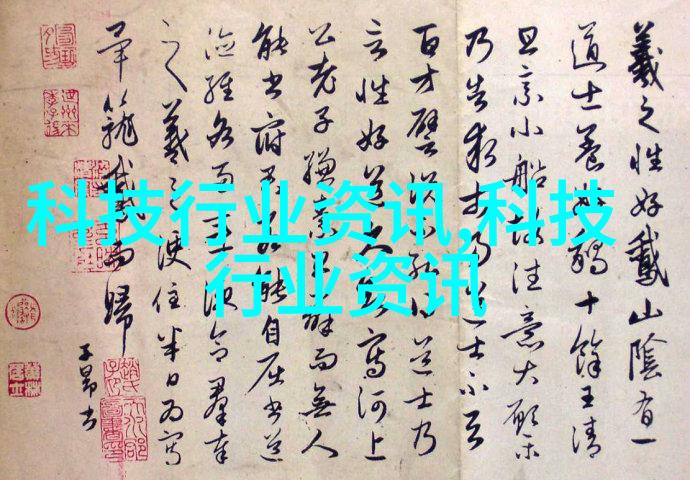 科技行业资讯,科技
行业资讯
羲之性好鵞山陰有一
道士養好鵝十餘王清
旦乘小船故往意大願乐
乃告求市易道士不与
百方譬說不能得道士乃
言性好道久欲寫河上
公老子縑素早辦而無人
能書府君若能自屈書道
德經各兩章便合羣奉
之羲之便住半日為寫
畢籠鵞而歸
子昂書